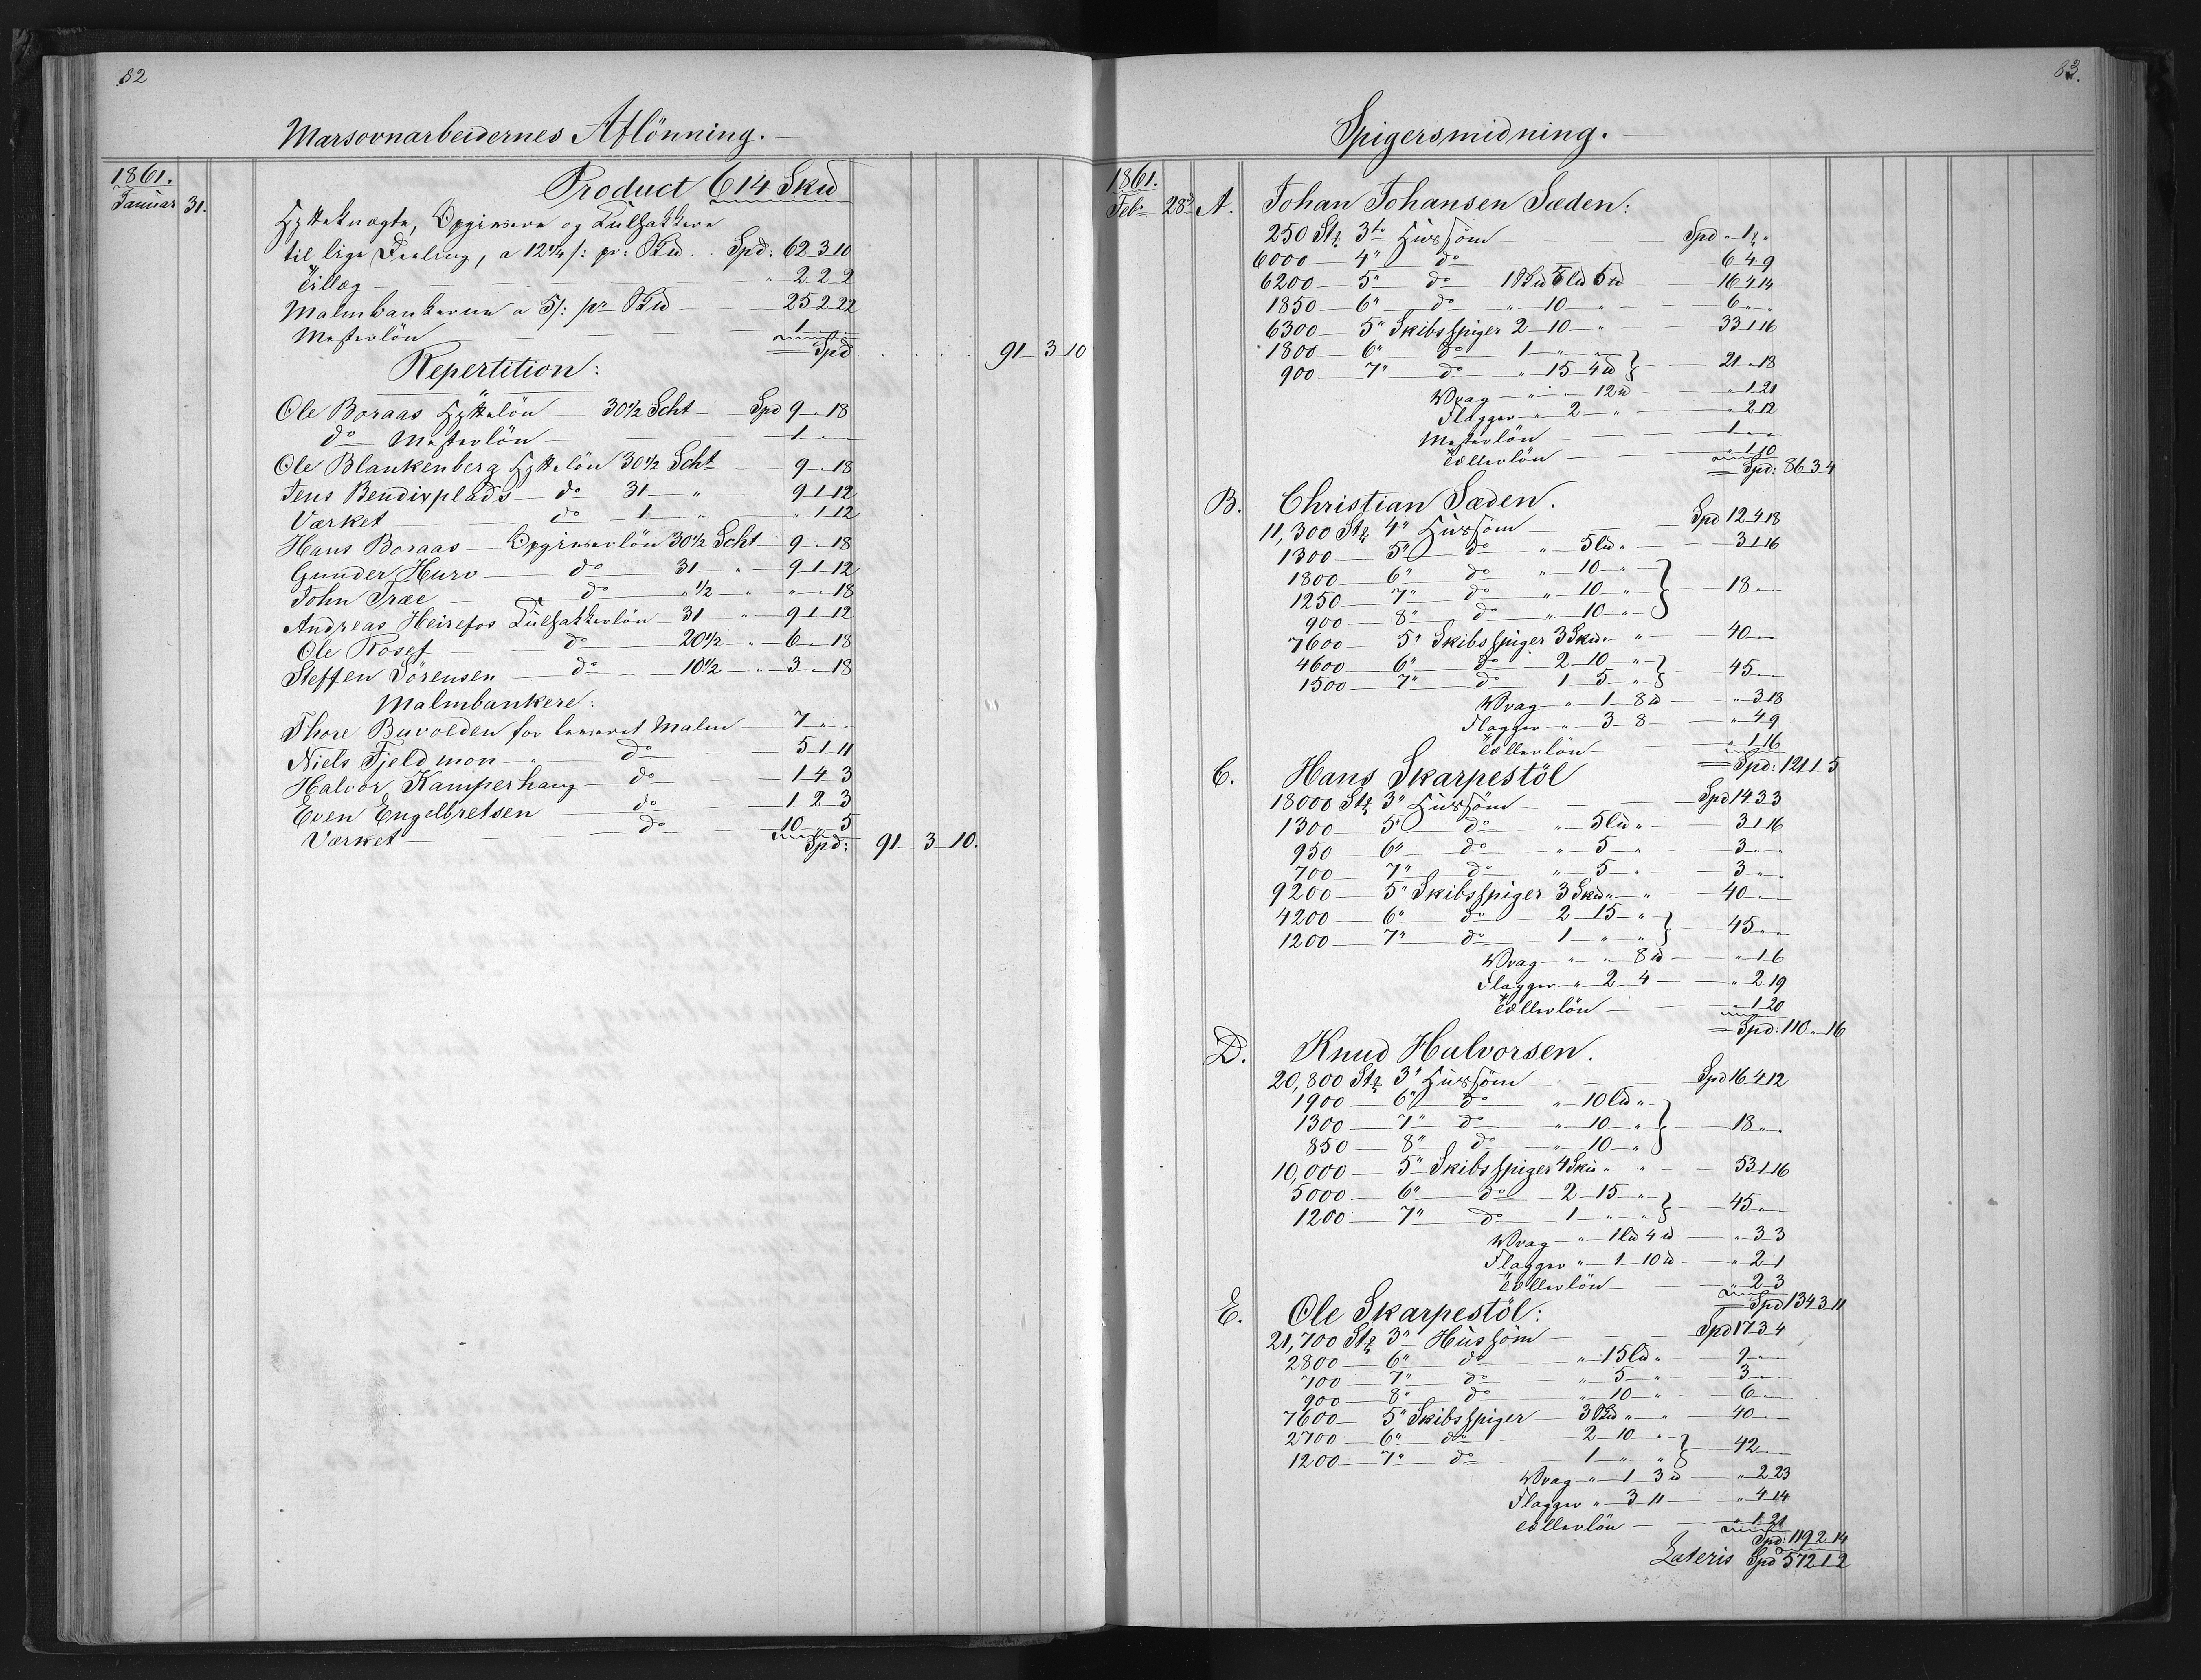 82
Marsovnarbeidernes Aflönning.
1861.
Januar 31.
Product 614 Skd
Hytteknægte, Opgivere og Kulsættere
til lige Deeling, a 12¼ s: pr: Skd. Spd: 62 3 10
Tillæg — " 2 2 2
Malmbankerne a 5 s: pr Skd — 25 2 22
Mesterlön — 1 " "
Spd 91 3 10
Repertition:
Ole Boraas Hyttelön — 30½ Scht — Spd 9 " 18
do Mesterlön — 1 " "
Ole Blankenberg Hyttelön 30½ Scht 9 " 18
Jens Bendixplads — do 31 — " 9 1 12
Værket — do 1 — " " 1 12
Hans Boraas — Opgiverlön 30½ Scht 9 " 18
Gunder Hurv — do 31 " 9 1 12
John Træe — do " ½ " " " 18
Andreas Heirefos Kulsætterlön 31 " 9 1 12
Ole Rosef — do 20½ " 6 " 18
Steffen Sörensen — do 10½ " 3 " 18
Malmbankere:
Thore Buvolden for banket Malm — 7 " "
Niels Fjeldmon — " do — 5 1 11
Halvor Kamperhaug — do — 1 4 3
Even Engelbretsen do — 1 2 3
Værket — do — 10 " 5
Spd: 91 3 10.
83.
Spigersmidning.
1861.
Feb. 28 A. Johan Johansen Sæden:
250 Stk 3" Huussöm — Spd " 1 "
6000 — 4" do 6 4 9
6200 — 5" do 1 Skd 5 Ld 5 d 16 4 14
1850 — 6" do " 10 " 6 " "
6300 — 5" Skibsspiger 2 — 10 " 33 1 16
1800 — 6" do 1 " "
900 — 7" do " 15 4 d } 21 " 18
Wrag — " " 12 d " 1 21
Flagger — " 2 " " 2 12
Mesterlön — 1 " "
Tællerlön — " 1 10
Spd: 86 3 4
B. Christian Sæden.
11,300 Stk 4" Huussöm — Spd 12 4 18
1300 — 5" do " 5 Ld " 3 1 16
1800 — 6" do " 10 "
1250 — 7" do " 10 " } 18 " "
900 — 8" do " 10 "
7600 — 5" Skibsspiger 3 Skd " " 40 " "
4600 — 6" do 2 10 "
1500 — 7" do 1 5 " } 45 " "
Wrag — " 1 8 d " 3 18
Flagger — " 3 8 " 4 9
Tællerlön — " 1 16
Spd: 121 1 5
C. Hans Skarpestöl
18000 Stk 3" Huussöm — Spd 14 3 3
1300 — 5" do " 5 Ld " 3 1 16
950 — 6" do " 5 " 3 " "
700 — 7" do " 5 " 3 " "
9200 — 5" Skibsspiger 3 Skd " " 40 " "
4200 — 6" do 2 15 "
1200 — 7" do 1 " " } 45 " "
Wrag — " " 8 d " 1 6
Flagger — " 2 4 " 2 19
Tællerlön — " 1 20
Spd: 110 " 16
D. Knud Halvorsen.
20,800 Stk 3" Huussöm — Spd 16 4 12
1900 — 6" do " 10 Ld "
1300 — 7" do " 10 " } 18 " "
850 — 8" do " 10 "
10,000 — 5" Skibsspiger 4 Skd " " 53 1 16
5000 — 6" do 2 15 "
1200 — 7" do 1 " " } 45 " "
Wrag — " 1 Ld 4 d " 3 3
Flagger " 1 10 d " 2 1
Tællerlön — " 2 3
Spd 134 3 11
E. Ole Skarpestöl:
21,700 Stk 3" Huussöm — Spd 17 3 4
2800 — 6" do " 15 Ld " 9 " "
700 — 7" do " 5 " 3 " "
900 — 8" do " 10 " 6 " "
7600 — 5" Skibsspiger — 3 Skd " " 40 " "
2700 — 6" do 2 10 "
1200 — 7" do 1 " " } 42 " "
Wrag — " 1 3 d " 2 23
Flagger " 3 11 " 4 14
Tællerlön — " 1 21
Spd: 119 2 14
Lateris Spd 572 1 2